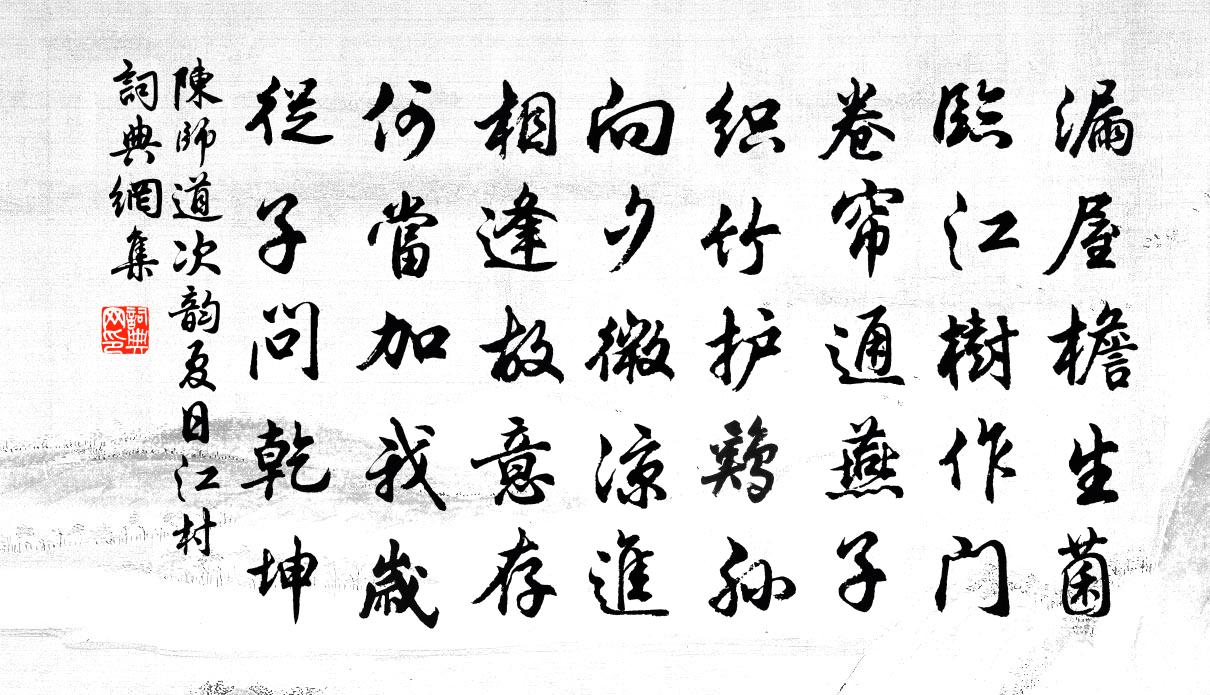 漏屋檐生菌
臨江樹作门
卷帘通燕子
织竹护鷄孙
向夕微凉進
相逢故意存
何當加我歲
從子问乾坤
陳師道次韵夏日江村
詞典網集
詞典网印